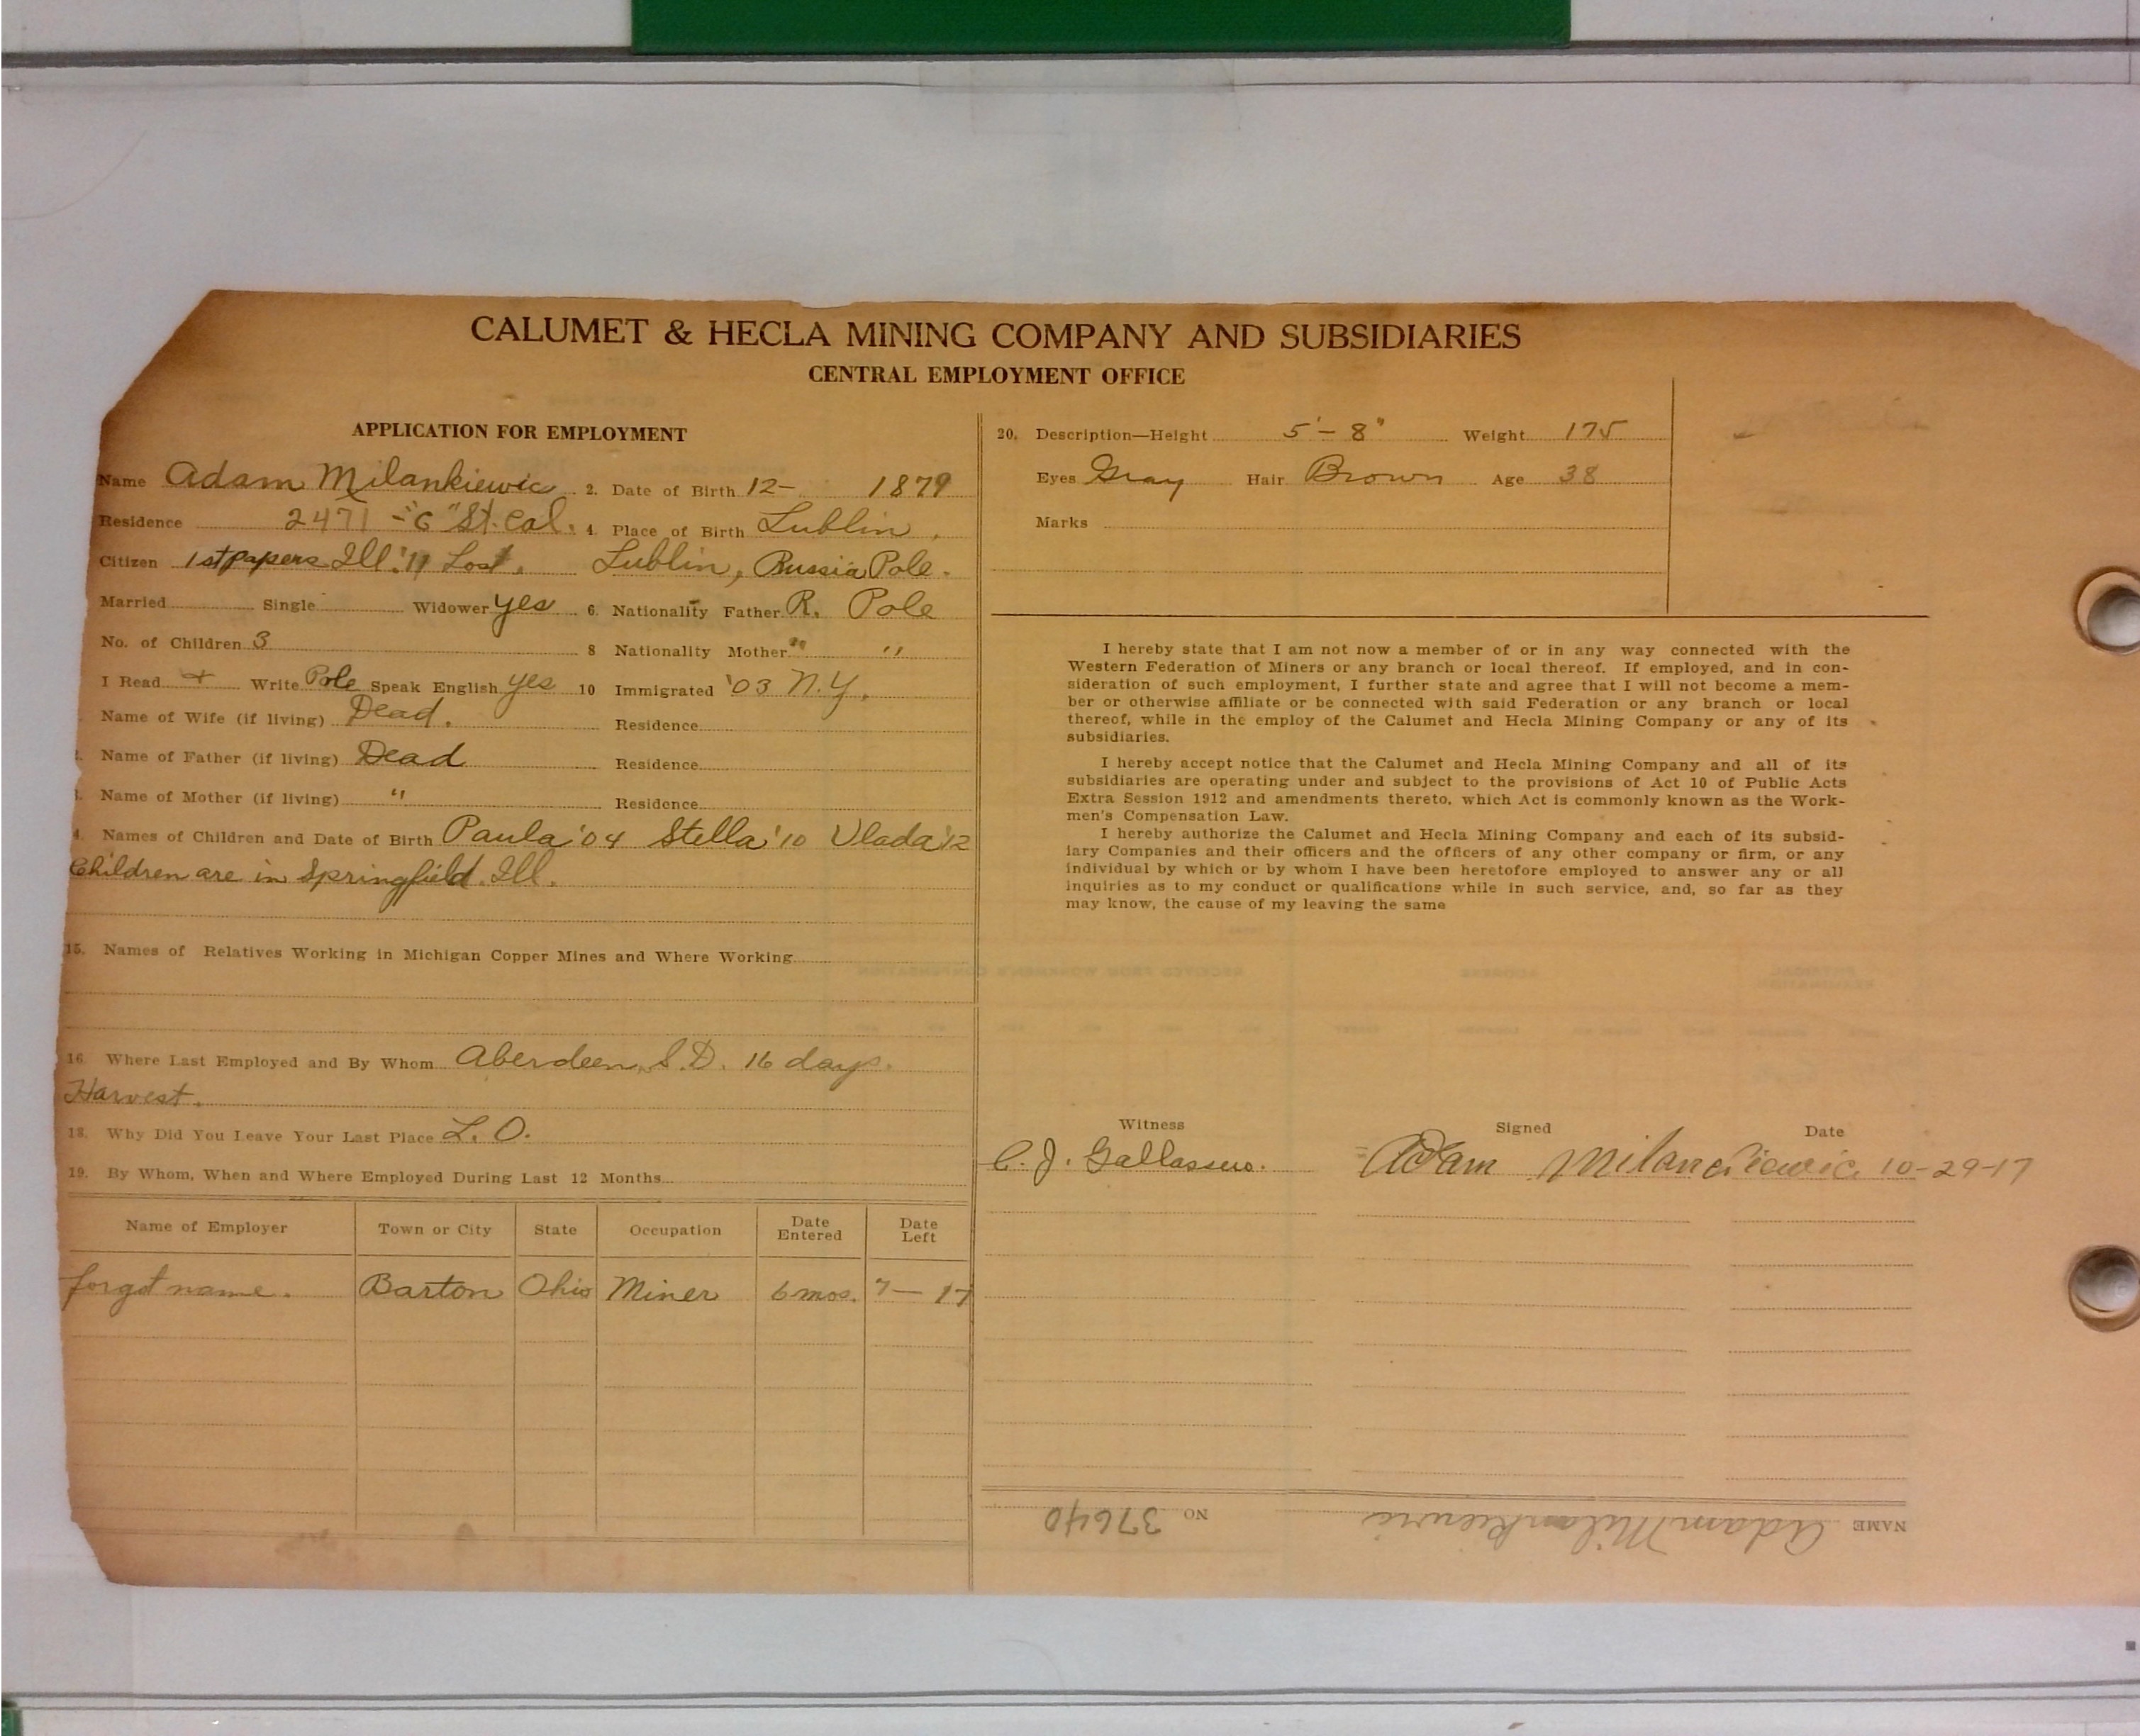 CALUMET & HECLA MINING COMPANY AND SUBSIDIARIES
CENTRAL EMPLOYMENT OFFICE
APPLICATION FOR EMPLOYMENT
Name Adam Milankiewic 2. Date of Birth 12- 1879
Residence 2471 - "C" St. Cal. 4. Place of Birth Lublin,
Citizen 1st papers Ill. '11 Lost. Lublin, Russia Pole.
Married Single Widower yes 6. Nationality Father R. Pole
No. of Children 3 8 Nationality Mother " "
I Read + Write Pole Speak English yes 10 Immigrated '03 N.Y.
Name of Wife (if living) Dead. Residence
Name of Father (if living) Dead Residence
Name of Mother (if living) " Residence
4. Names of Children and Date of Birth Paula '04 Stella '10 Vlada '12
Children are in Springfield. Ill.
15. Names of Relatives Working in Michigan Copper Mines and Where Working
16. Where Last Employed and By Whom Aberdeen, S.D. 16 days.
Harvest.
18. Why Did You Leave Your Last Place L. O.
19. By Whom, When and Where Employed During Last 12 Months
Name of Employer Town or City State Occupation Date Entered Date Left
forgot name. Barton Ohio Miner 6 mos. 7-17
20. Description—Height 5'-8" Weight 175
Eyes Gray Hair Brown Age 38
Marks
I hereby state that I am not now a member of or in any way connected with the
Western Federation of Miners or any branch or local thereof. If employed, and in con-
sideration of such employment, I further state and agree that I will not become a mem-
ber or otherwise affiliate or be connected with said Federation or any branch or local
thereof, while in the employ of the Calumet and Hecla Mining Company or any of its
subsidiaries.
I hereby accept notice that the Calumet and Hecla Mining Company and all of its
subsidiaries are operating under and subject to the provisions of Act 10 of Public Acts
Extra Session 1912 and amendments thereto, which Act is commonly known as the Work-
men's Compensation Law.
I hereby authorize the Calumet and Hecla Mining Company and each of its subsid-
iary Companies and their officers and the officers of any other company or firm, or any
individual by which or by whom I have been heretofore employed to answer any or all
inquiries as to my conduct or qualifications while in such service, and, so far as they
may know, the cause of my leaving the same
Witness Signed Date
C. J. Adam Milanckiewic 10-29-17
NAME Adam Milankiewic NO 37640